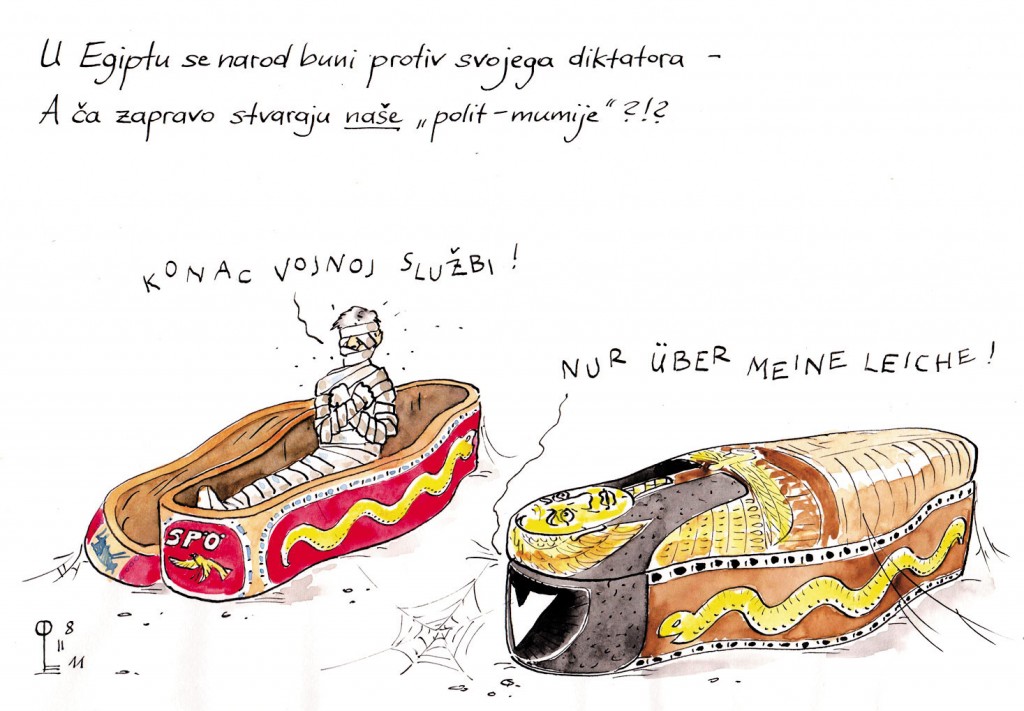 U Egiptu se narod buni protiv svojega diktatora –
A ča zapravo stvaraju naše „polit-mumije“?!?
KONAC VOJNOJ SLUŽBI!
NUR ÜBER MEINE LEICHE!
SPÖ
8
11